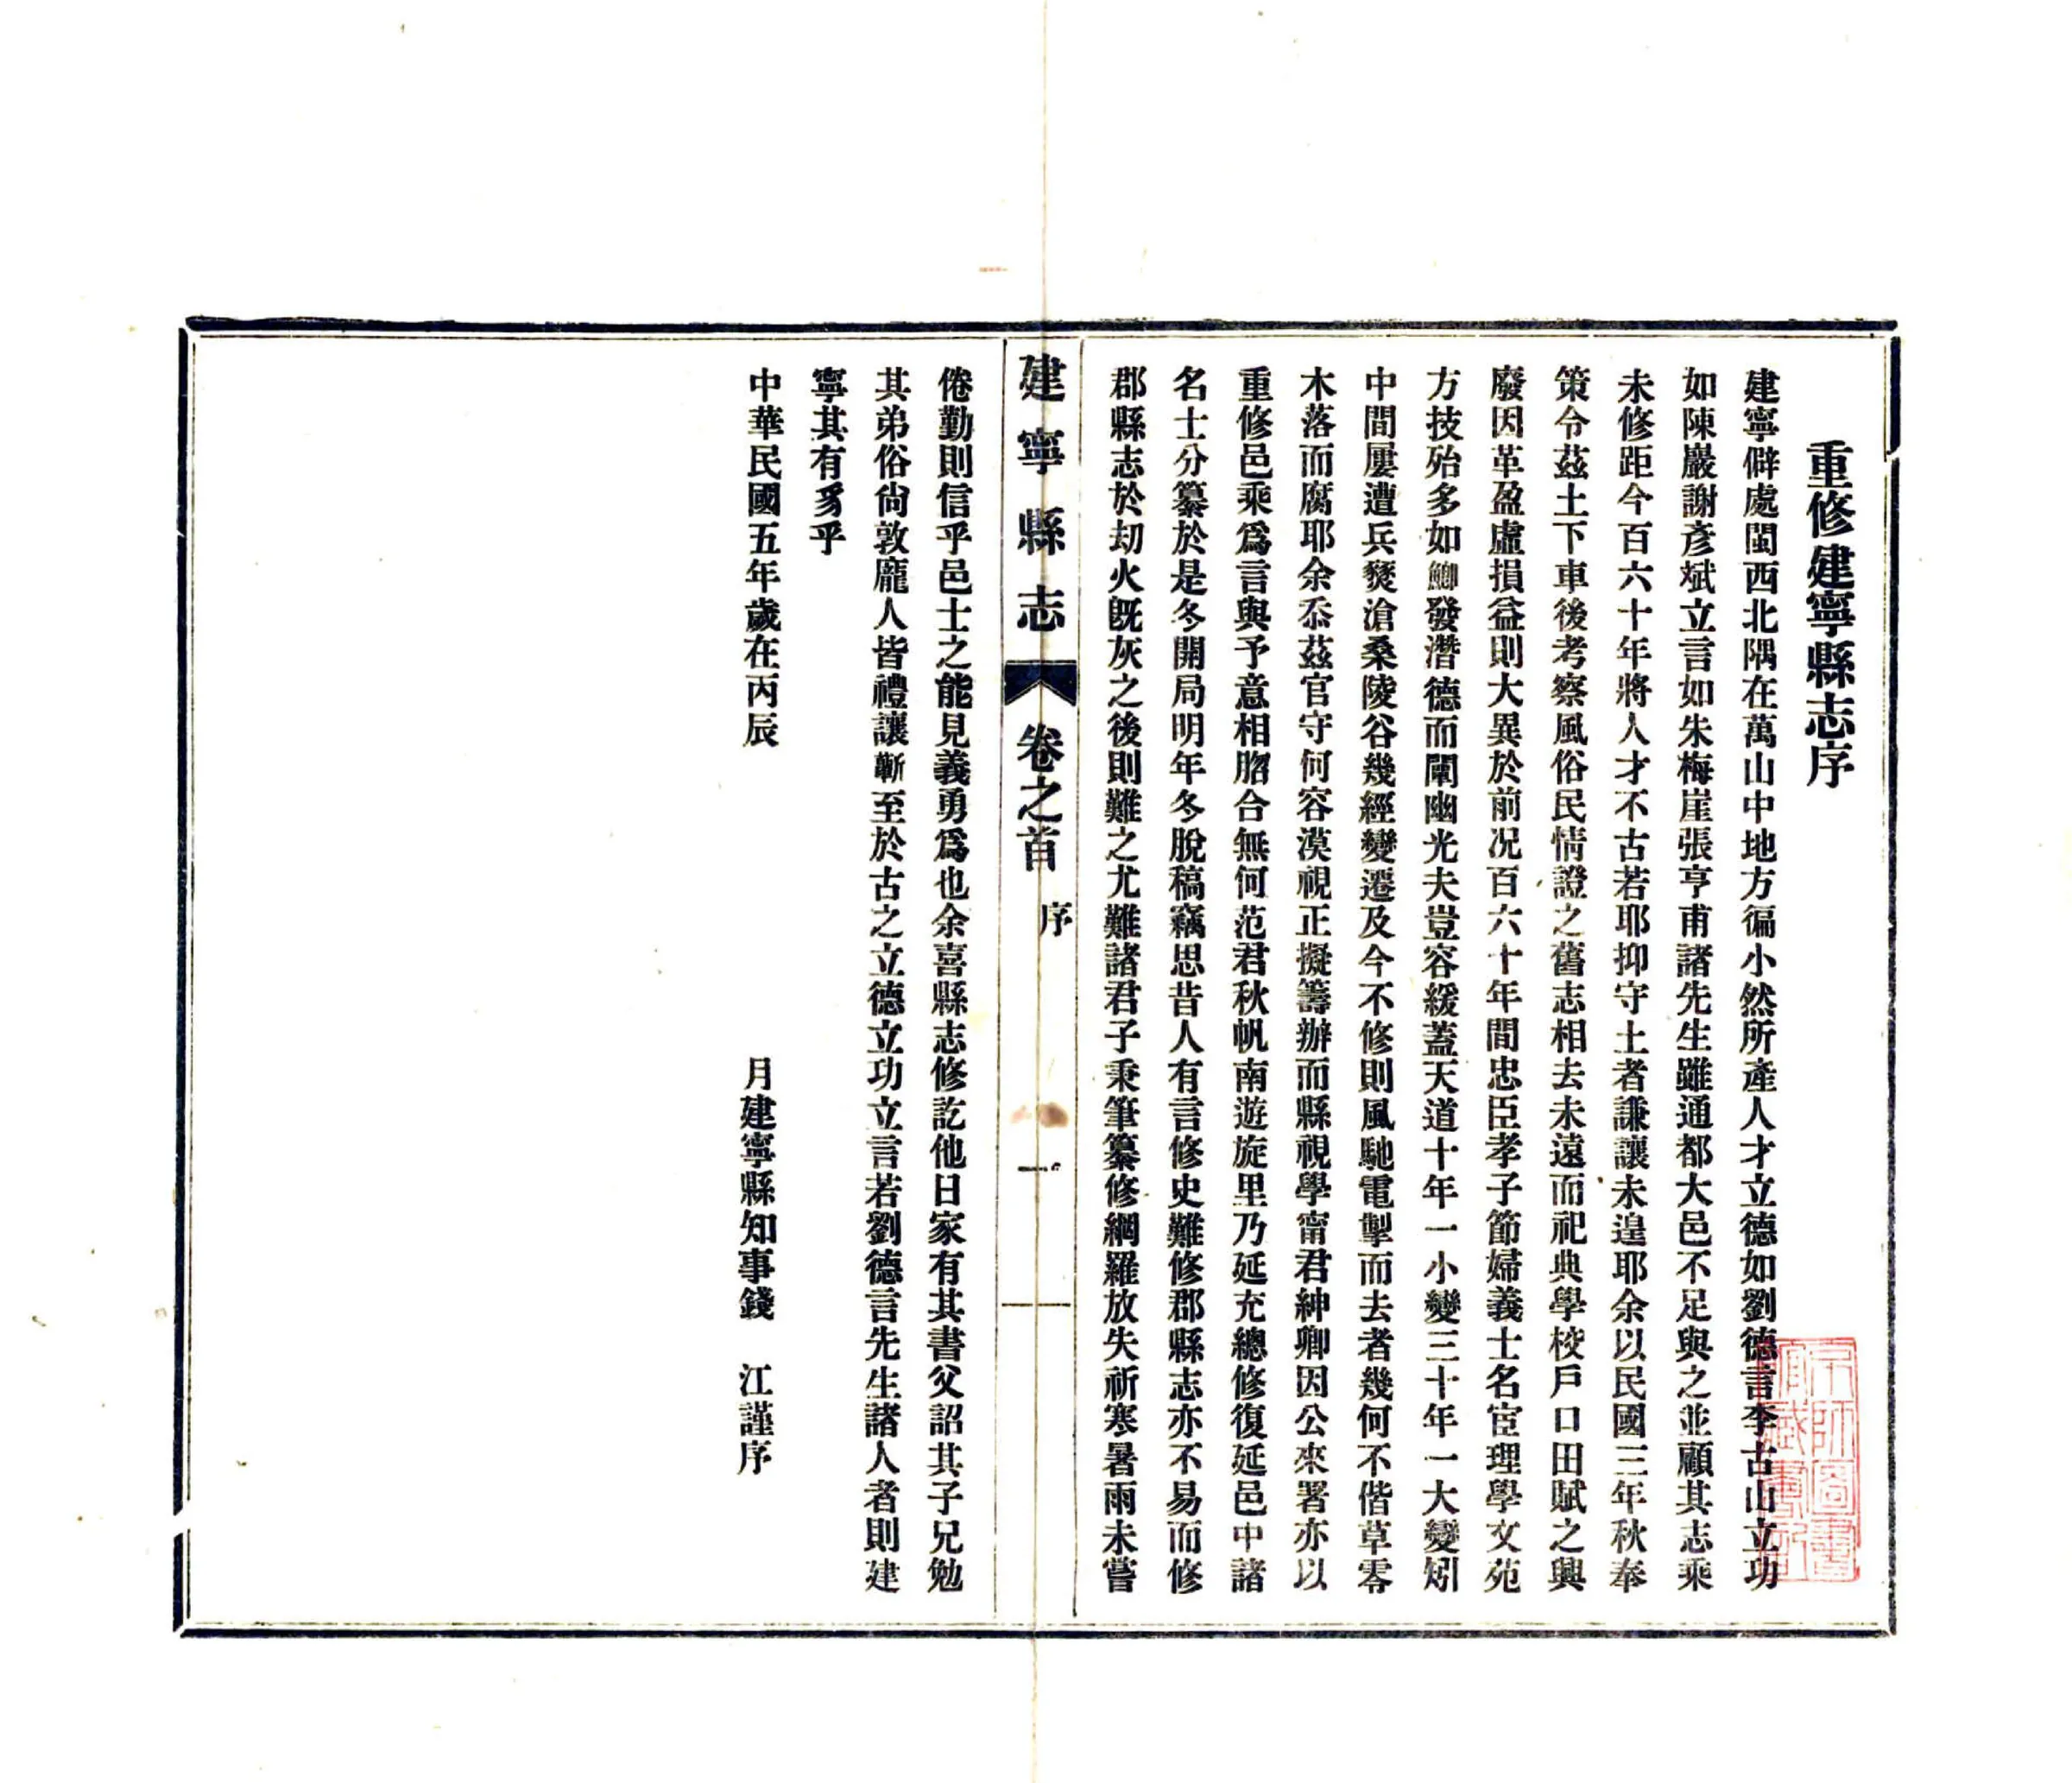 重修建寧縣志序
建寧僻處閩西北隅在萬山中地方徧小然所產人才立德如劉德言李古山立功
如陳巖謝彥斌立言如朱梅崖張亨甫諸先生雖通都大邑不足與之並顧其志乘
未修距今百六十年將人才不古若耶抑守土者謙讓未遑耶余以民國三年秋奉
策令茲土下車後考察風俗民情證之舊志相去未遠而祀典學校戶口田賦之興
廢因革盈虛損益則大異於前况百六十年間忠臣孝子節婦義士名宦理學文苑
方技殆多如鯽發潛德而闡幽光夫豈容緩蓋天道十年一小變三十年一大變矧
中間屢遭兵燹滄桑陵谷幾經變遷及今不修則風馳電掣而去者幾何不偕草零
木落而腐耶余忝茲官守何容漠視正擬籌辦而縣視學甯君紳卿因公來署亦以
重修邑乘爲言與予意相脗合無何范君秋帆南遊旋里乃延充總修復延邑中諸
名士分纂於是冬開局明年冬脫稿竊思昔人有言修史難修郡縣志亦不易而修
郡縣志於刧火旣灰之後則難之尤難諸君子秉筆纂修網羅放失祈寒暑雨未嘗
建寧縣志 卷之首 序 一
倦勤則信乎邑士之能見義勇爲也余喜縣志修訖他日家有其書父詔其子兄勉
其弟俗尙敦龐人皆禮讓蘄至於古之立德立功立言若劉德言先生諸人者則建
寧其有豸乎
中華民國五年歲在丙辰 月建寧縣知事錢 江謹序